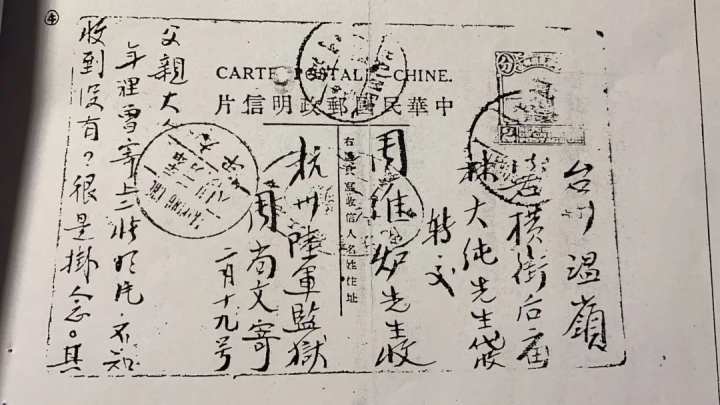 ④
CARTE POSTALE CHINE.
中華民國郵政明信片
右邊只寫收信人名姓住址
台州溫嶺
橫街后
林大純先生
轉交
周維炉先生收
杭州陸軍監獄
周尚文寄
二月十九号
父親大人
年裡曾寄上一張明片不知
收到沒有？很是掛念。其